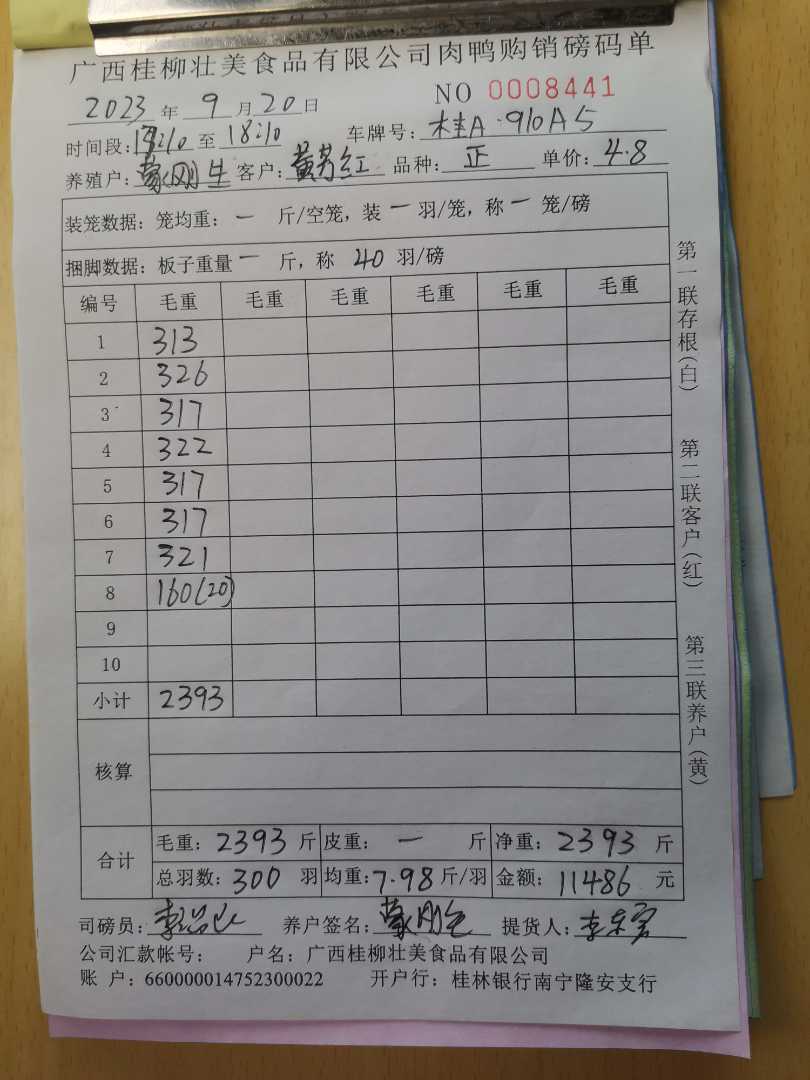 广西桂柳壮美食品有限公司肉鸭购销磅码单
2023 年 9 月 20 日 NO 0008441
时间段: 17:10 至 18:10 车牌号: 桂A·910A5
养殖户: 蒙刚生 客户: 黄芳红 品种: 正 单价: 4.8
装笼数据: 笼均重: 一 斤/空笼, 装 一 羽/笼, 称 一 笼/磅
捆脚数据: 板子重量 一 斤, 称 40 羽/磅
编号 毛重 毛重 毛重 毛重 毛重 毛重
1 313
2 326
3 317
4 322
5 317
6 317
7 321
8 160(20)
9
10
小计 2393
核算
合计 毛重: 2393 斤 皮重: 一 斤 净重: 2393 斤
总羽数: 300 羽 均重: 7.98 斤/羽 金额: 11486 元
司磅员: 养户签名: 蒙刚生 提货人:
公司汇款帐号: 户名: 广西桂柳壮美食品有限公司
账 户: 660000014752300022 开户行: 桂林银行南宁隆安支行
第一联存根(白) 第二联客户(红) 第三联养户(黄)